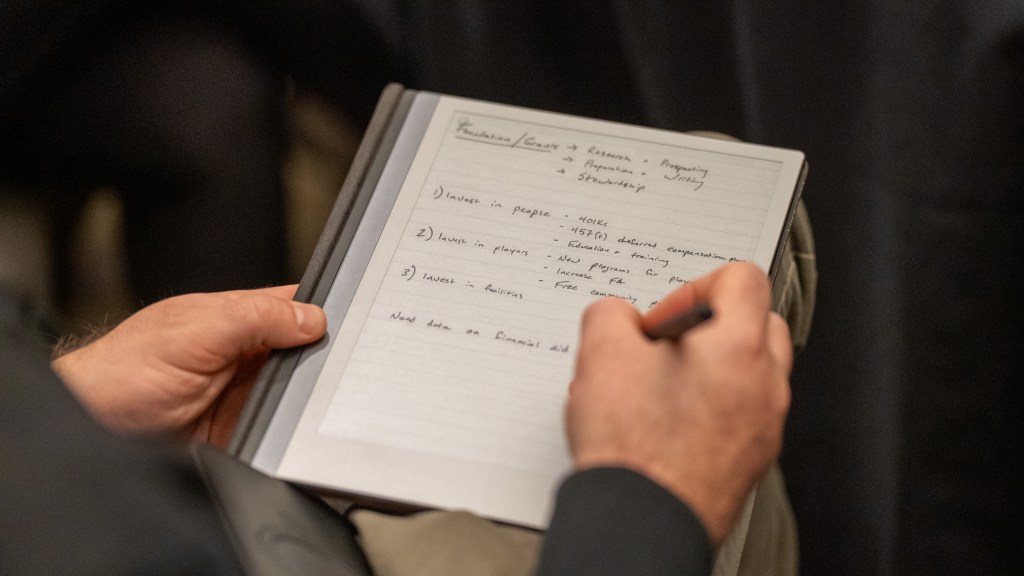 Foundation/Grants → Research + Prospecting
→ Preparation + Writing
→ Stewardship
1) Invest in people - 401Ks
- 457(f) deferred compensation plans
- Education + training
2) Invest in players - New programs for
- Increase FA
- Free community
3) Invest in facilities
Need data on financial aid